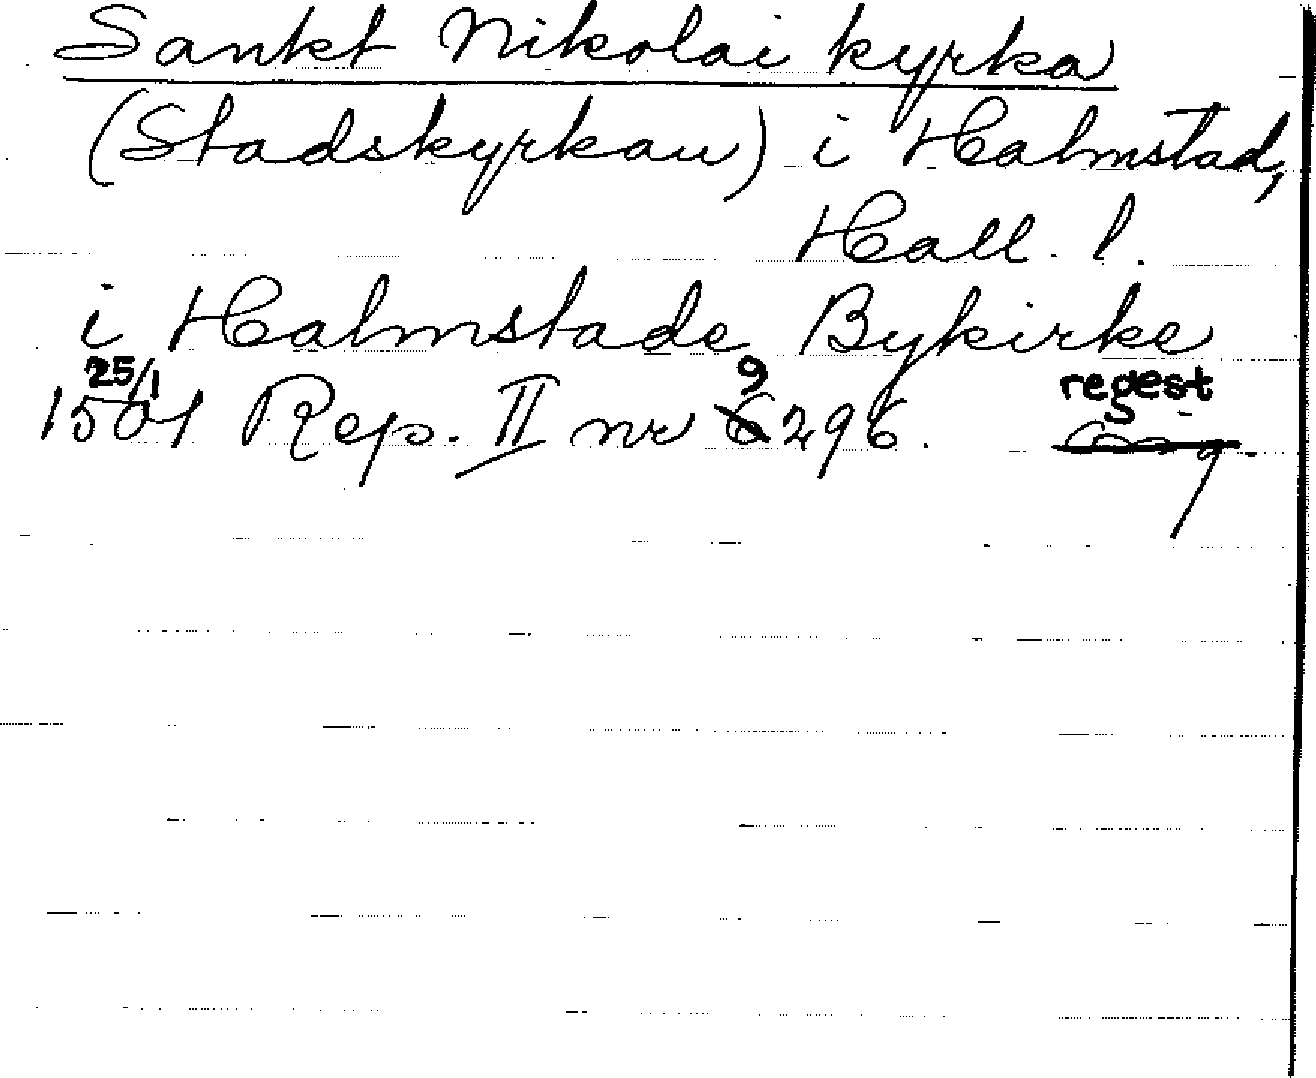 Sankt Nikolai kyrka
(Stadskyrkan) i Halmstad,
Hall. l.
i Halmstade Bykirke
25/1 9 regest
1501 Rep. II nr 6296.